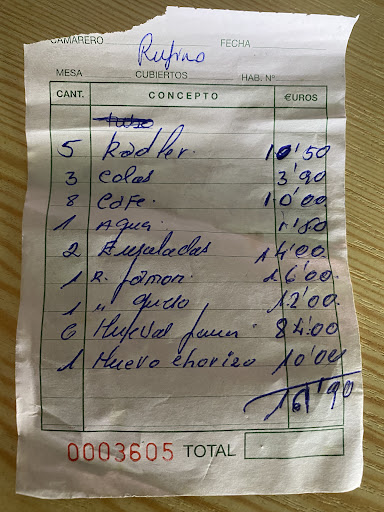 CAMARERO FECHA
Rufino
MESA CUBIERTOS HAB. Nº
CANT. CONCEPTO €UROS
5 Radler. 10'50
3 Colas 3'90
8 Cafe. 10'00
1 Agua. 1'50
2 Ensaladas 14'00
1 R. jamon. 26'00
1 " queso 12'00
6 84'00
1 Huevo chorizo 10'00
0003605 TOTAL